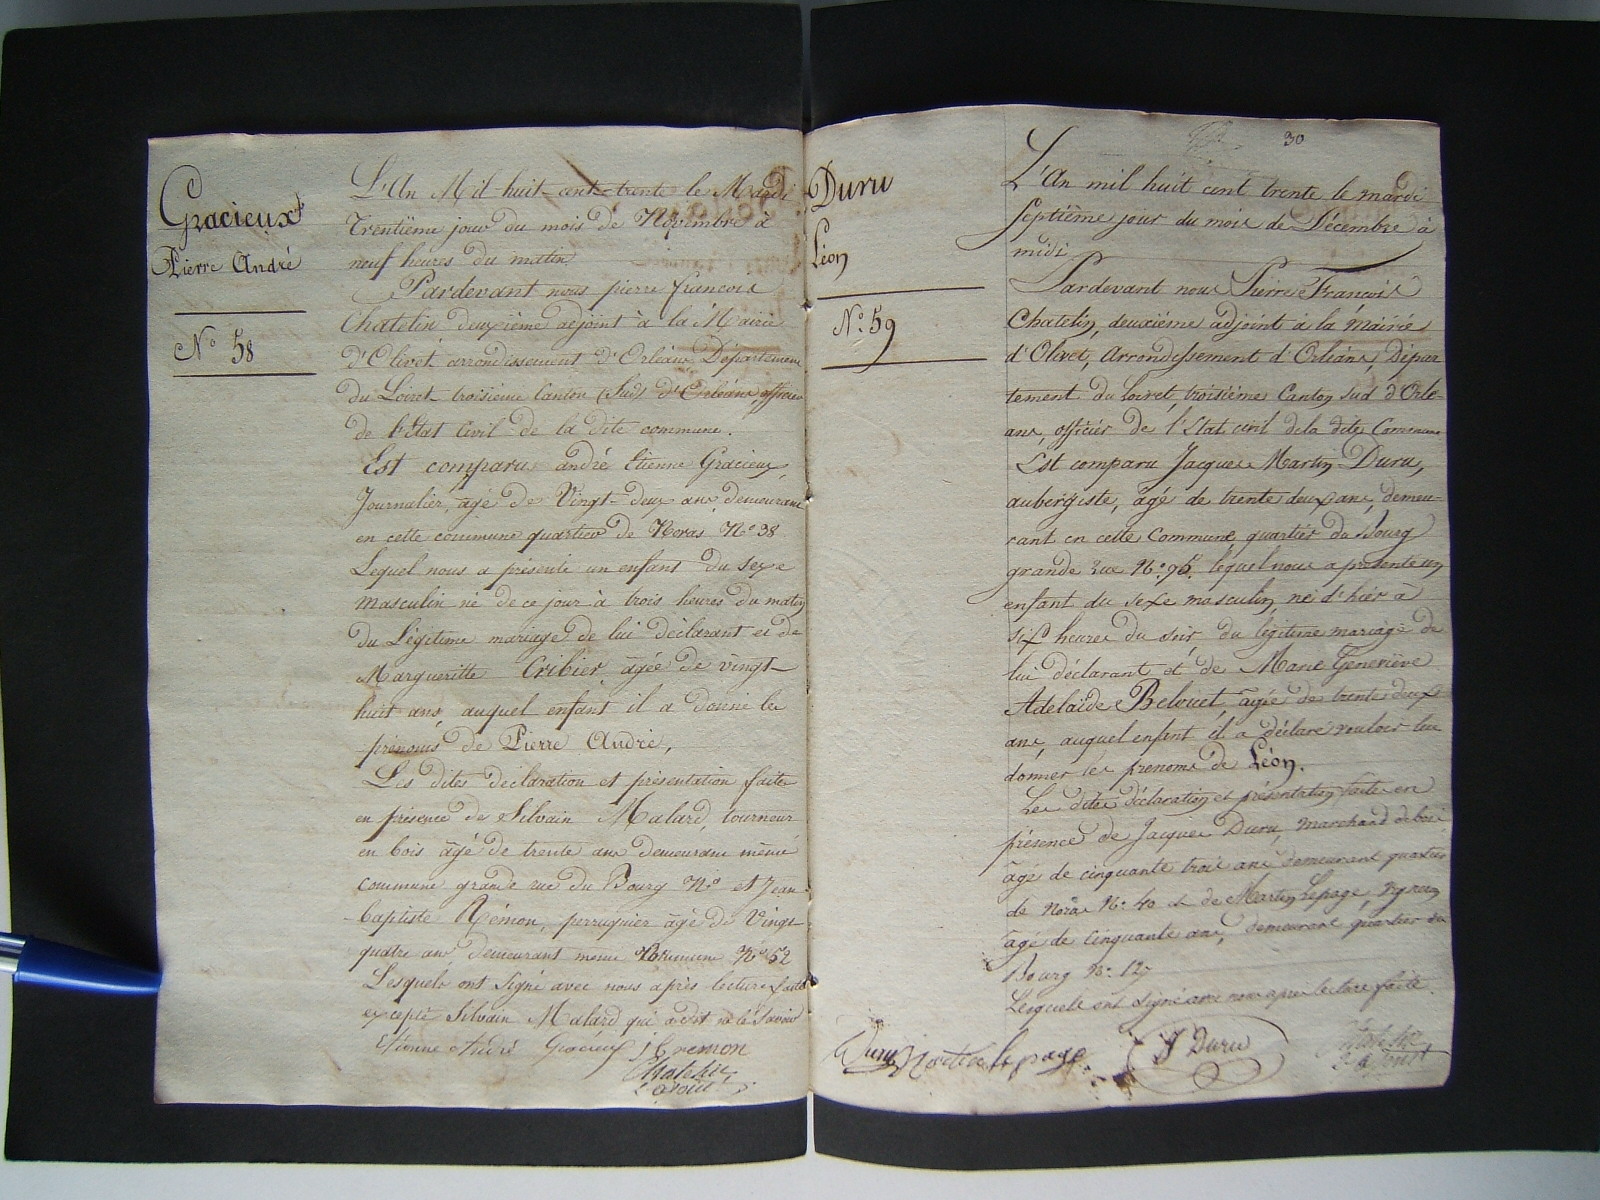 Gracieux
Pierre André
N° 58
L'An Mil huit cent trente le Mardi
Trentième jour du mois de Novembre à
neuf heures du matin
Pardevant nous pierre francois
Chatelin deuxième adjoint à la Mairie
d'Olivet arrondissement d'Orléans Département
du Loiret troisième Canton (Sud) d'Orléans officier
de l'État Civil de la dite commune.
Est comparu andré Etienne Gracieux,
Journalier, agé de Vingt-deux ans demeurant
en cette commune quartier de N° 38
Lequel nous a présenté un enfant du sexe
masculin né de ce jour à trois heures du matin
du Légitime mariage de lui déclarant et de
Margueritte Cribier, agée de vingt
huit ans, auquel enfant il a donné les
prénoms de Pierre André,
Les dites déclaration et présentation faites
en présence de Silvain Malard, tourneur
en bois âgé de trente ans demeurant même
commune grande rue du Bourg N° et Jean
baptiste Rémon, perruquier âgé de Vingt
quatre ans, demeurant même Commune N° 52
Lesquels ont Signé avec nous après lecture faite
excepté Silvain Malard qui a dit ne le Savoir
Etienne André Gracieux J B remon
Chatelin
Duru
Léon
N° 59
30
L'An mil huit cent trente le mardi
Septième jour du mois de Décembre à
midi
Pardevant nous Pierre François
Chatelin, deuxième adjoint à la mairie
d'Olivet, Arrondissement d'Orléans, Dépar
tement du Loiret, troisième Canton Sud d'Orlé-
ans, officier de l'Etat civil dela dite Commune
Est comparu Jacques Martin Duru,
aubergiste, âgé de trente deux ans, demeu-
rant en cette Commune quartier du Bourg
grande rue N° 95. lequel nous a présenté un
enfant du sexe masculin, né d'hier à
six heures du soir, du légitime mariage de
lui déclarant et de Marie Geneviève
Adelaïde Belouet, agée de trente deux
ans, auquel enfant il a déclaré vouloir lui
donner les prenoms de Léon.
Les dites déclaration et présentation faites en
présence de Jacques Duru, marchand de bois
âgé de cinquante trois ans demeurant quartier
de N° 40 et de Martin Lepage, vigneron
agé de Cinquante ans, demeurant quartier du
Bourg N° 127
Lesquels ont signé avec nous après lecture faite.
Duru Martin le page J Duru Chatelin